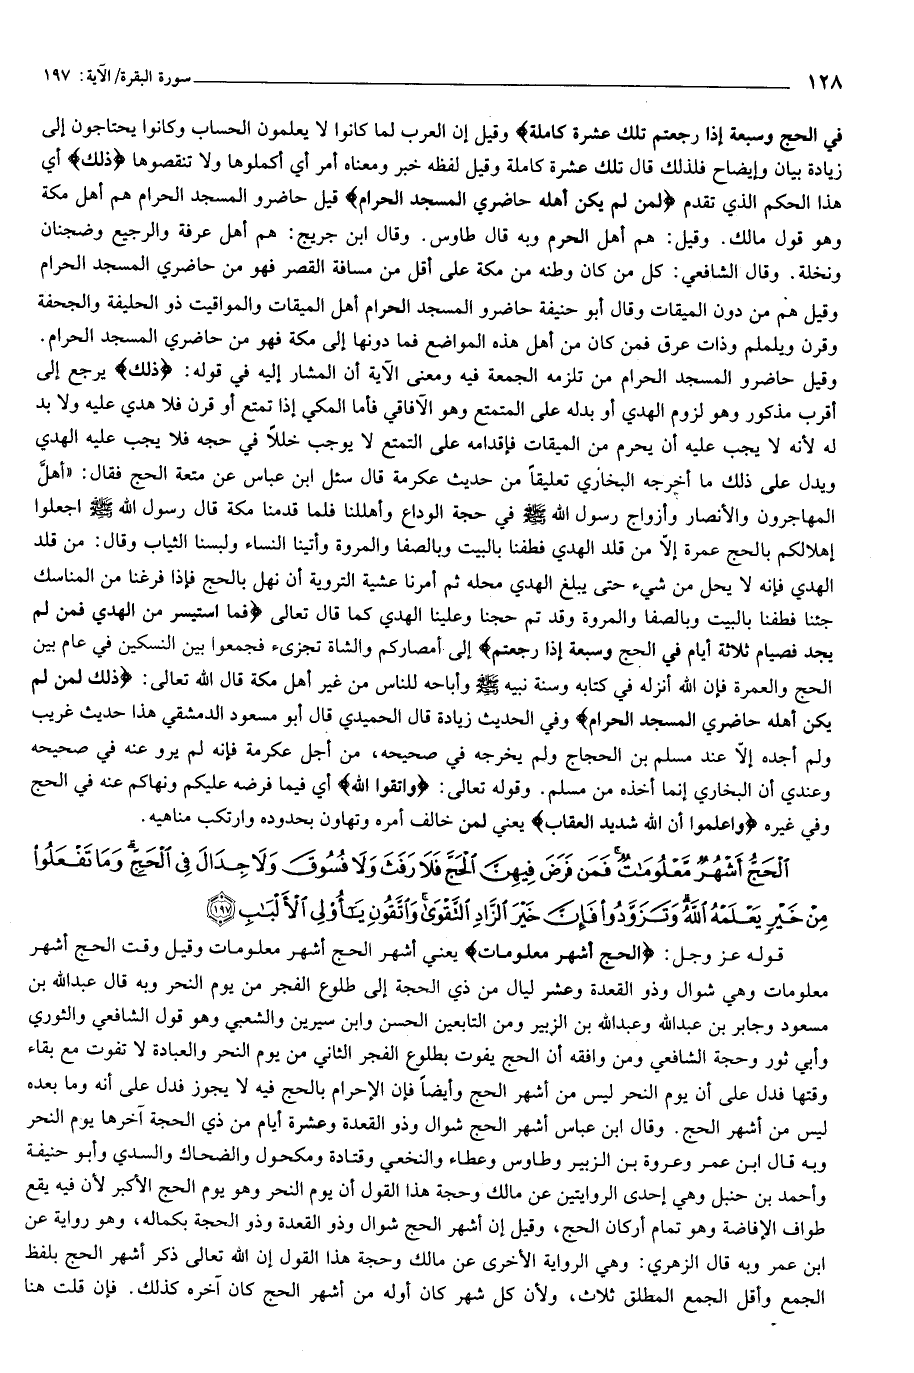 ١٢٨ سورة البقرة/ الآية: ١٩٧
في الحج وسبعة إذا رجعتم تلك عشرة كاملة﴾ وقيل إن العرب لما كانوا لا يعلمون الحساب وكانوا يحتاجون إلى
زيادة بيان وإيضاح فلذلك قال تلك عشرة كاملة وقيل لفظه خبر ومعناه أمر أي أكملوها ولا تنقصوها ﴿ذلك﴾ أي
هذا الحكم الذي تقدم ﴿لمن لم يكن أهله حاضري المسجد الحرام﴾ قيل حاضرو المسجد الحرام هم أهل مكة
وهو قول مالك. وقيل: هم أهل الحرم وبه قال طاوس. وقال ابن جريج: هم أهل عرفة والرجيع وضجنان
ونخلة. وقال الشافعي: كل من كان وطنه من مكة على أقل من مسافة القصر فهو من حاضري المسجد الحرام
وقيل هم من دون الميقات وقال أبو حنيفة حاضرو المسجد الحرام أهل الميقات والمواقيت ذو الحليفة والجحفة
وقرن ويلملم وذات عرق فمن كان من أهل هذه المواضع فما دونها إلى مكة فهو من حاضري المسجد الحرام.
وقيل حاضرو المسجد الحرام من تلزمه الجمعة فيه ومعنى الآية أن المشار إليه في قوله: ﴿ذلك﴾ يرجع إلى
أقرب مذكور وهو لزوم الهدي أو بدله على المتمتع وهو الآفاقي فأما المكي إذا تمتع أو قرن فلا هدي عليه ولا بد
له لأنه لا يجب عليه أن يحرم من الميقات فإقدامه على التمتع لا يوجب خللاً في حجه فلا يجب عليه الهدي
ويدل على ذلك ما أخرجه البخاري تعليقاً من حديث عكرمة قال سئل ابن عباس عن متعة الحج فقال: «أهلَّ
المهاجرون والأنصار وأزواج رسول الله ﷺ في حجة الوداع وأهللنا فلما قدمنا مكة قال رسول الله ﷺ اجعلوا
إهلالكم بالحج عمرة إلاّ من قلد الهدي فطفنا بالبيت وبالصفا والمروة وأتينا النساء ولبسنا الثياب وقال: من قلد
الهدي فإنه لا يحل من شيء حتى يبلغ الهدي محله ثم أمرنا عشية التروية أن نهل بالحج فإذا فرغنا من المناسك
جئنا فطفنا بالبيت وبالصفا والمروة وقد تم حجنا وعلينا الهدي كما قال تعالى ﴿فما استيسر من الهدي فمن لم
يجد فصيام ثلاثة أيام في الحج وسبعة إذا رجعتم﴾ إلى أمصاركم والشاة تجزىء فجمعوا بين النسكين في عام بين
الحج والعمرة فإن الله أنزله في كتابه وسنة نبيه ﷺ وأباحه للناس من غير أهل مكة قال الله تعالى: ﴿ذلك لمن لم
يكن أهله حاضري المسجد الحرام﴾ وفي الحديث زيادة قال الحميدي قال أبو مسعود الدمشقي هذا حديث غريب
ولم أجده إلاّ عند مسلم بن الحجاج ولم يخرجه في صحيحه، من أجل عكرمة فإنه لم يرو عنه في صحيحه
وعندي أن البخاري إنما أخذه من مسلم. وقوله تعالى: ﴿واتقوا الله﴾ أي فيما فرضه عليكم ونهاكم عنه في الحج
وفي غيره ﴿واعلموا أن الله شديد العقاب﴾ يعني لمن خالف أمره وتهاون بحدوده وارتكب مناهيه.
ٱلْحَجُّ أَشْهُرٌ مَّعْلُومَٰتٌ ۚ فَمَن فَرَضَ فِيهِنَّ ٱلْحَجَّ فَلَا رَفَثَ وَلَا فُسُوقَ وَلَا جِدَالَ فِى ٱلْحَجِّ ۗ وَمَا تَفْعَلُوا۟
مِنْ خَيْرٍ يَعْلَمْهُ ٱللَّهُ ۗ وَتَزَوَّدُوا۟ فَإِنَّ خَيْرَ ٱلزَّادِ ٱلتَّقْوَىٰ ۚ وَٱتَّقُونِ يَٰٓأُو۟لِى ٱلْأَلْبَٰبِ ﴿١٩٧﴾
قوله عز وجل: ﴿الحج أشهر معلومات﴾ يعني أشهر الحج أشهر معلومات وقيل وقت الحج أشهر
معلومات وهي شوال وذو القعدة وعشر ليال من ذي الحجة إلى طلوع الفجر من يوم النحر وبه قال عبدالله بن
مسعود وجابر بن عبدالله وعبدالله بن الزبير ومن التابعين الحسن وابن سيرين والشعبي وهو قول الشافعي والثوري
وأبي ثور وحجة الشافعي ومن وافقه أن الحج يفوت بطلوع الفجر الثاني من يوم النحر والعبادة لا تفوت مع بقاء
وقتها فدل على أن يوم النحر ليس من أشهر الحج وأيضاً فإن الإحرام بالحج فيه لا يجوز فدل على أنه وما بعده
ليس من أشهر الحج. وقال ابن عباس أشهر الحج شوال وذو القعدة وعشرة أيام من ذي الحجة آخرها يوم النحر
وبه قال ابن عمر وعروة بن الزبير وطاوس وعطاء والنخعي وقتادة ومكحول والضحاك والسدي وأبو حنيفة
وأحمد بن حنبل وهي إحدى الروايتين عن مالك وحجة هذا القول أن يوم النحر وهو يوم الحج الأكبر لأن فيه يقع
طواف الإفاضة وهو تمام أركان الحج، وقيل إن أشهر الحج شوال وذو القعدة وذو الحجة بكماله، وهو رواية عن
ابن عمر وبه قال الزهري: وهي الرواية الأخرى عن مالك وحجة هذا القول إن الله تعالى ذكر أشهر الحج بلفظ
الجمع وأقل الجمع المطلق ثلاث، ولأن كل شهر كان أوله من أشهر الحج كان آخره كذلك. فإن قلت هنا